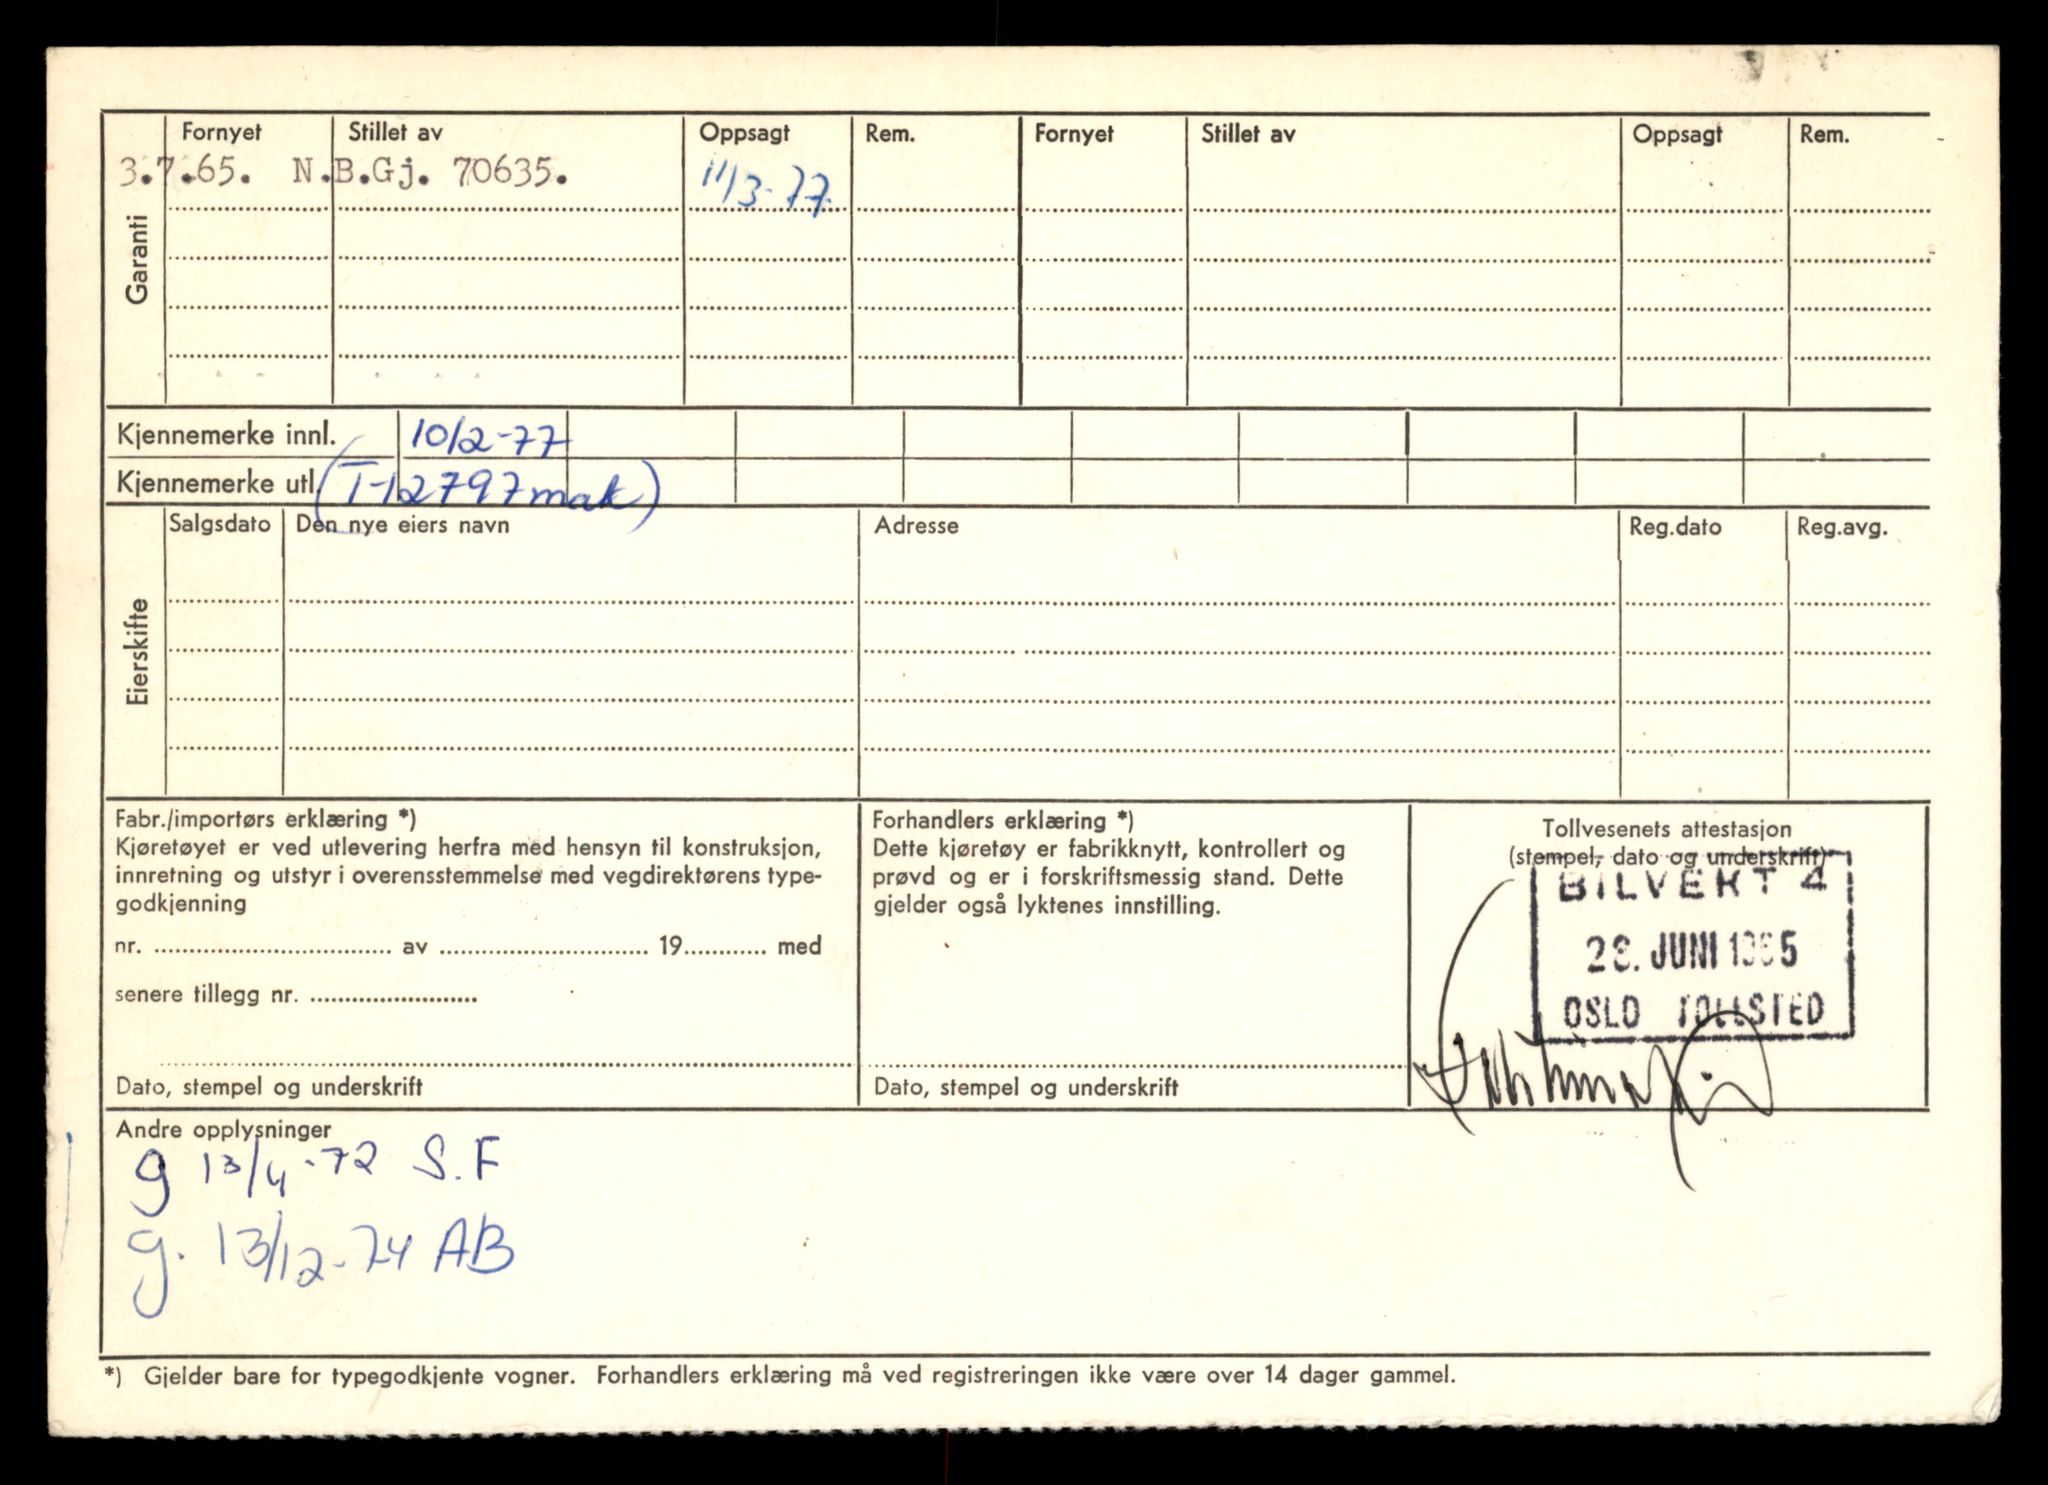 Fornyet Stillet av Oppsagt Rem. Fornyet Stillet av Oppsagt Rem.
3.7.65. N.B.Gj. 70635. 11/3-77.
Garanti
Kjennemerke innl. 10/2-77
Kjennemerke utl. (T-12797 mak)
Eierskifte
Salgsdato Den nye eiers navn Adresse Reg.dato Reg.avg.
Fabr./importørs erklæring *)
Kjøretøyet er ved utlevering herfra med hensyn til konstruksjon,
innretning og utstyr i overensstemmelse med vegdirektørens type-
godkjenning
nr. ........ av ........ 19........ med
senere tillegg nr. ........
Dato, stempel og underskrift
Forhandlers erklæring *)
Dette kjøretøy er fabrikknytt, kontrollert og
prøvd og er i forskriftsmessig stand. Dette
gjelder også lyktenes innstilling.
Dato, stempel og underskrift
Tollvesenets attestasjon
(stempel, dato og underskrift)
BILVERT 4
28. JUNI 1965
OSLO TOLLSTED
Andre opplysninger
g 13/4-72 S.F
g. 13/12-74 AB
*) Gjelder bare for typegodkjente vogner. Forhandlers erklæring må ved registreringen ikke være over 14 dager gammel.